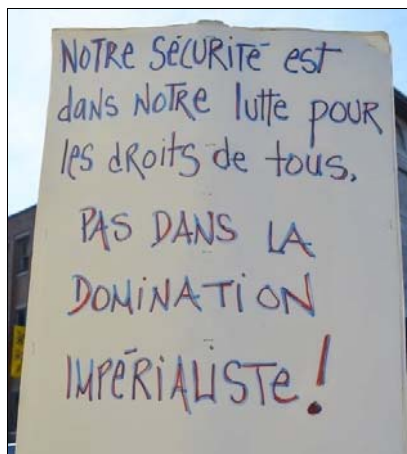 NOTRE SÉCURITÉ est
dans NOTRE lutte POUR
les dROits de tous,
PAS DANS LA
DOMiNATiON
IMPÉRiALiSTe !